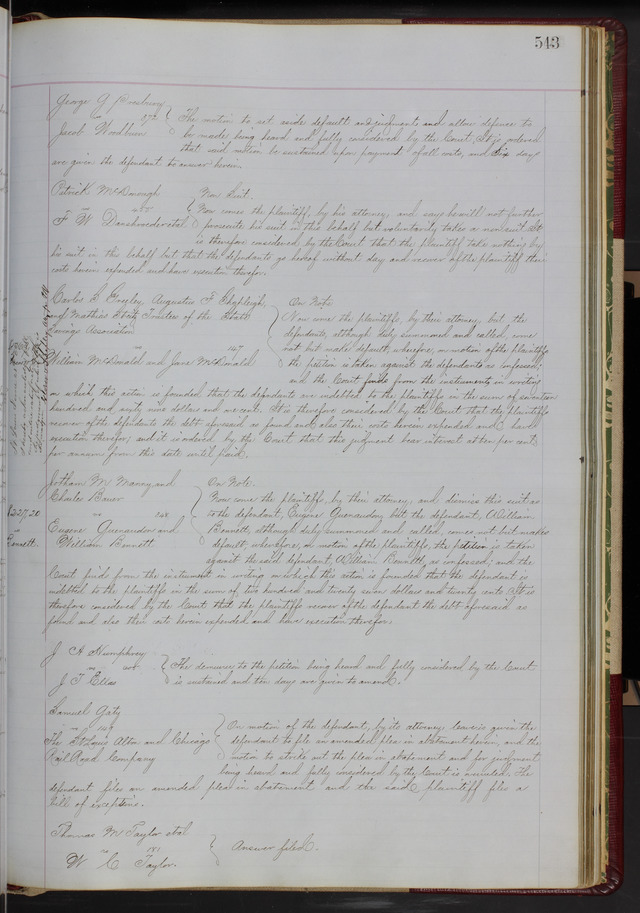 543
George G
vs
Jacob Woodburn
The motion to set aside default and judgment and allow defence to
be made being heard and fully considered by the Court, It is ordered
that said motion be sustained upon payment of all costs, and six days
are given the defendant to answer herein.
Patrick McDonough
vs
F W
Non Suit.
Now comes the plaintiff, by his attorney, and says he will not further
prosecute his suit in this behalf but voluntarily takes a non suit It
is therefore considered by the Court that the plaintiff take nothing by
his suit in this behalf but that the defendants go hereof without day and recover of the plaintiff their
costs herein expended and have execution therefor.
Carlos S Greeley, Augustus F Shapleigh,
and Trustees of the State
Savings Association
vs 147
William McDonald and Jane McDonald
On Note
Now come the plaintiffs, by their attorney, but the
defendants, although duly summoned and called, come
not but make default; wherefore, on motion of the plaintiffs
the petition is taken against the defendants as confessed;
and the Court finds from the instruments in writing
on which this action is founded that the defendants are indebted to the plaintiffs in the sum of seventeen
hundred and sixty nine dollars and one cent. It is therefore considered by the Court that the plaintiffs
recover of the defendants the debt aforesaid as found and also their costs herein expended and have
execution therefor; and it is ordered by the Court that this judgment bear interest at ten per cent
per annum from this date until paid.
Jotham M and
Charles
vs 248
Eugene and
William Bennett
On Note.
Now come the plaintiffs, by their attorney, and dismiss this suit as
to the defendant, Eugene but the defendant, William
Bennett, although duly summoned and called, comes not but makes
default; wherefore, on motion of the plaintiffs, the petition is taken
against the said defendant, William Bennett, as confessed; and the
Court finds from the instrument in writing on which this action is founded that the defendant is
indebted to the plaintiffs in the sum of two hundred and twenty seven dollars and twenty cents. It is
therefore considered by the Court that the plaintiffs recover of the defendant the debt aforesaid as
found and also their costs herein expended and have execution therefor.
$227.20
Bennett.
J A Humphrey
vs
J T Ellis
The demurrer to the petition being heard and fully considered by the Court
is sustained and ten days are given to amend.
Samuel Gaty
vs
The St Louis Alton and Chicago
Rail Road Company
On motion of the defendant, by its attorney leave is given the
defendant to file an amended plea in abatement herein, and the
motion to strike out the plea in abatement and for judgment
being heard and fully considered by the Court is overruled. The
defendant files an amended plea in abatement and the said plaintiff files a
bill of exceptions.
Thomas M Taylor et al
vs 181
W C Taylor.
Answer filed.